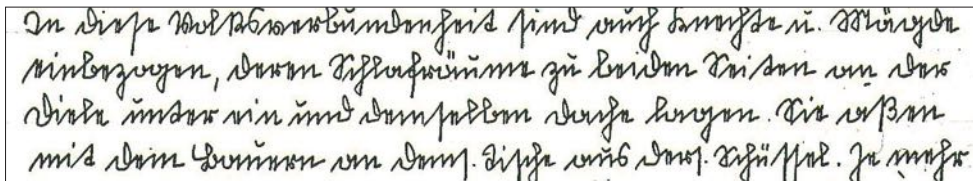 In diese Volksverbundenheit sind auch Knechte u. Mägde
einbezogen, deren Schlafräume zu beiden Seiten an der
Diele unter ein und demselben Dache lagen. Sie aßen
mit dem Bauern an dems. Tische aus ders. Schüssel. Je mehr